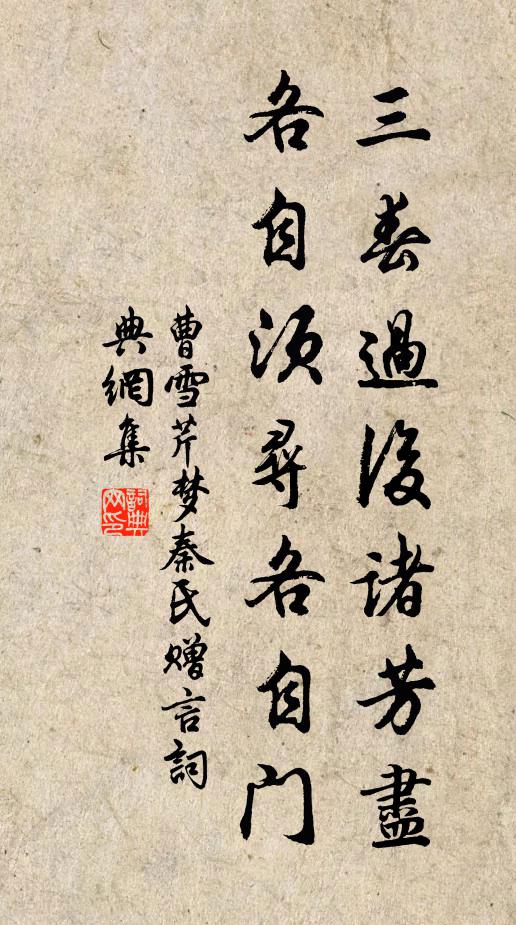 三春過後諸芳盡
各自须尋各自门
曹雪芹梦秦氏赠言詞
典網集
詞典网印